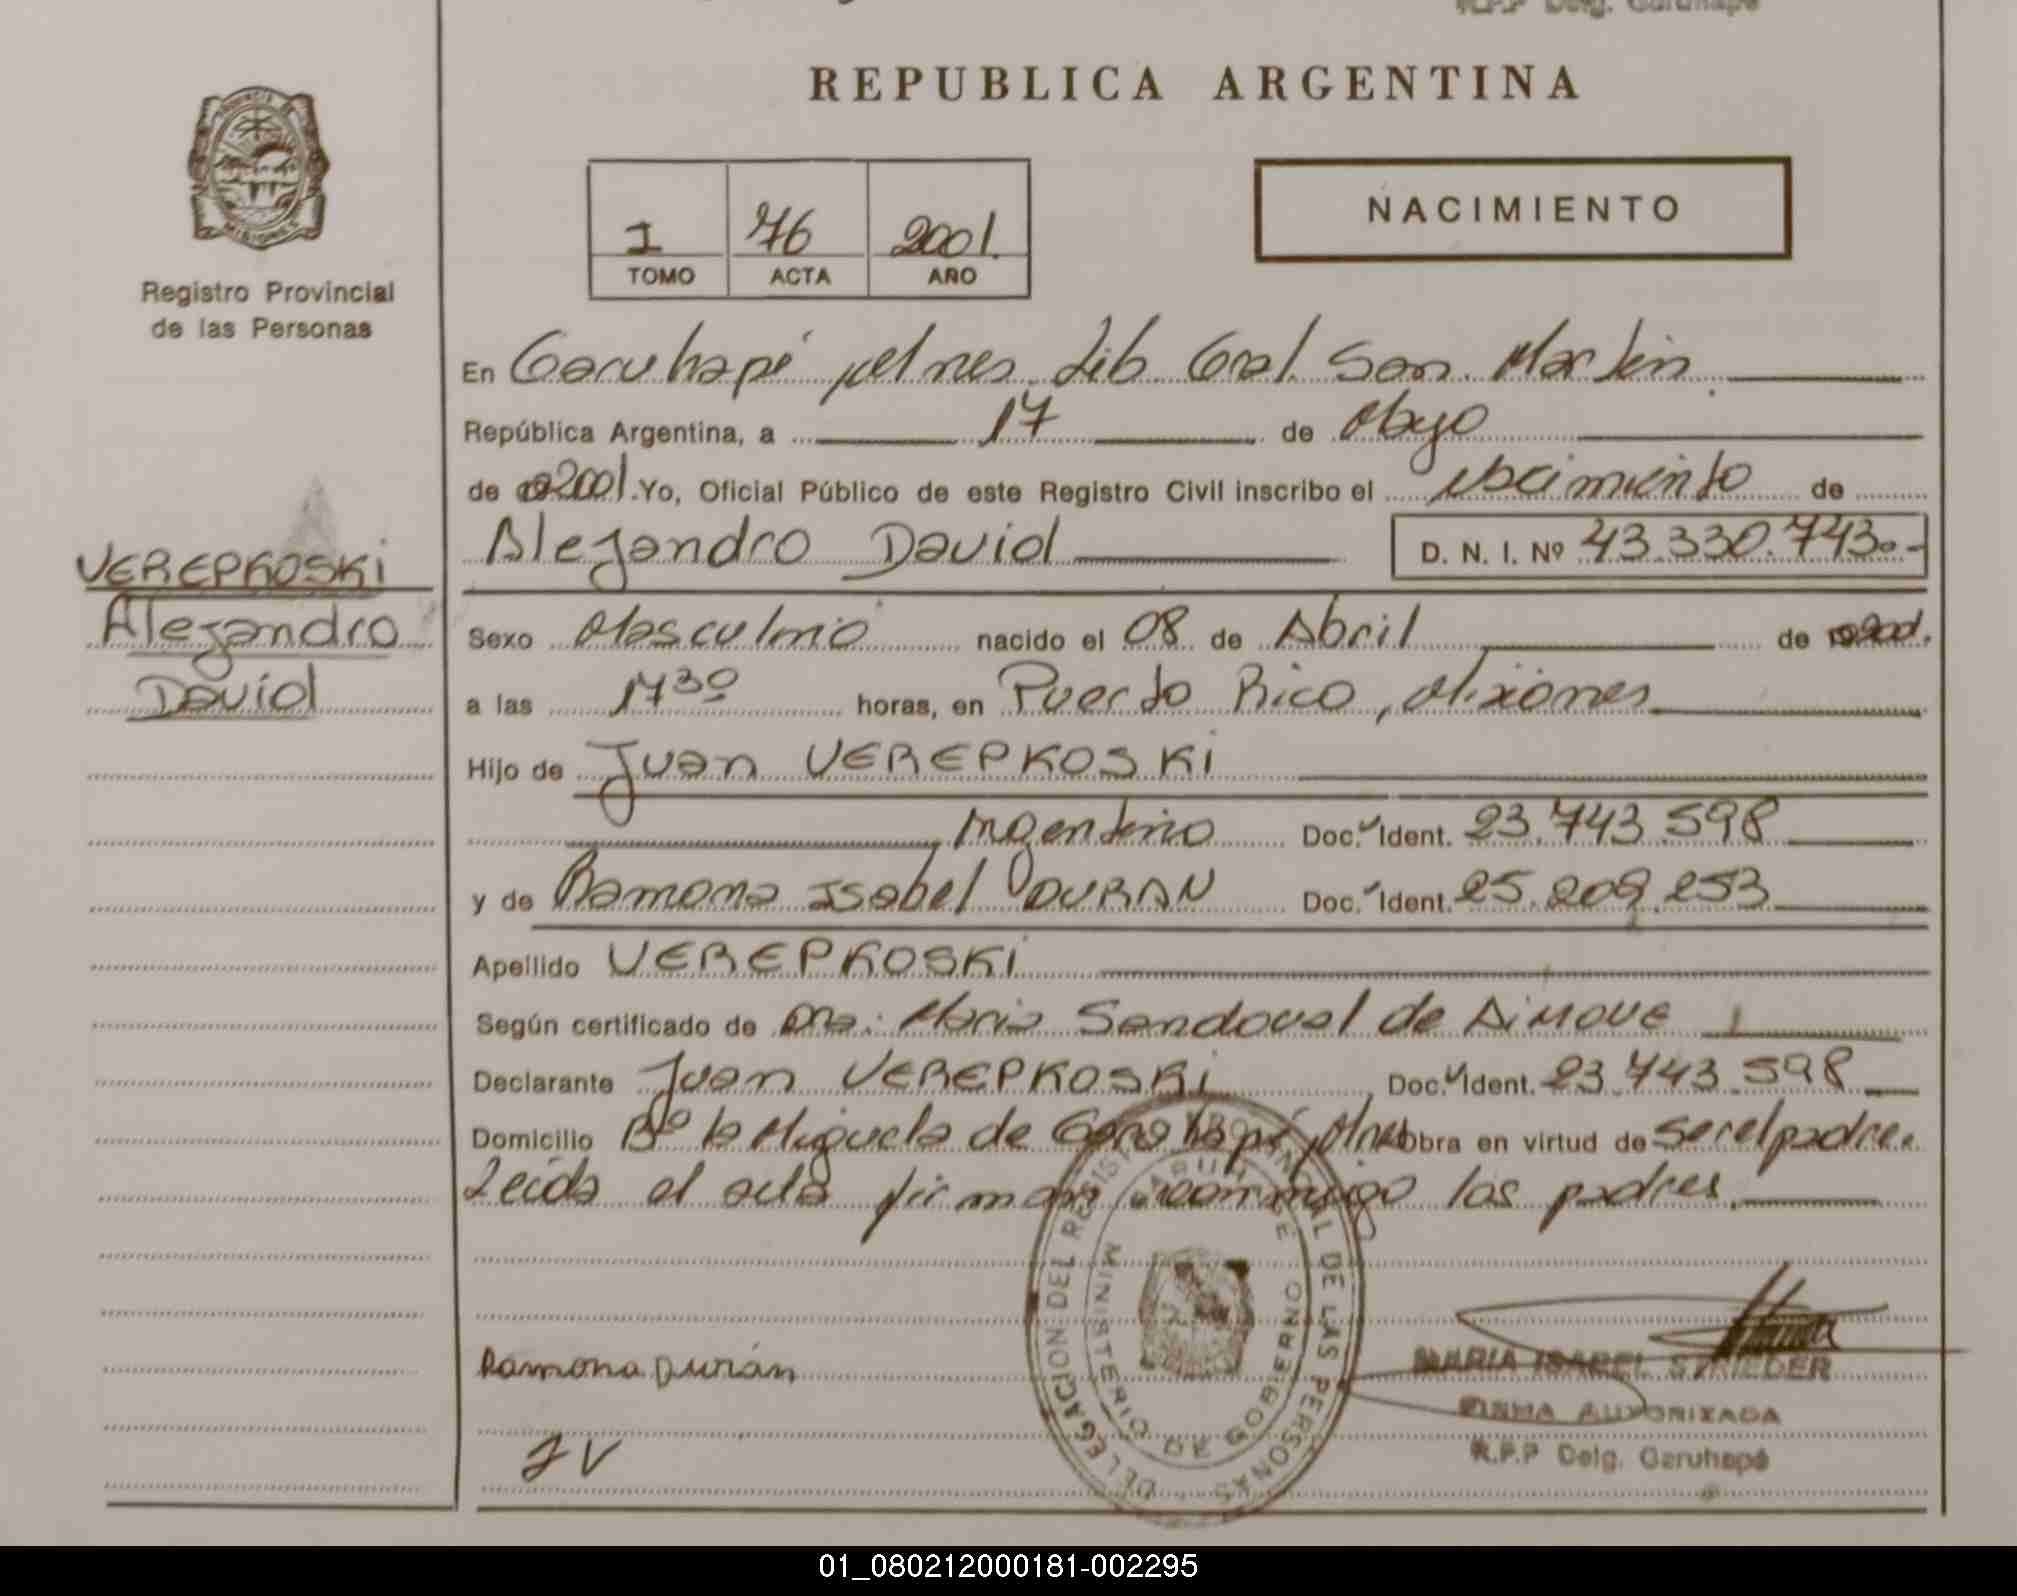 R.P.P Delg. Garuhapé
REPUBLICA ARGENTINA
PROVINCIA DE
MISIONES
Registro Provincial
de las Personas
1 76 2001.
TOMO ACTA AÑO
NACIMIENTO
En Garuhapé, Mnes. Lib. Gral. San Martín
República Argentina, a 17 de Mayo
de 2001. Yo, Oficial Público de este Registro Civil inscribo el nacimiento de
Alejandro David D. N. I. Nº 43.330.743.-
VEREPKOSKi
Alejandro
David
Sexo Masculino nacido el 08 de Abril de 2001.
a las 17 30 horas, en Puerto Rico, Misiones
Hijo de Juan VEREPKOSKi
Argentino Doc. Ident. 23.743.598
y de Ramona Isabel DURAN Doc. Ident. 25.209.253
Apellido VEREPKOSKi
Según certificado de Dra. Maria Sandoval de
Declarante Juan VEREPKOSKi Doc. Ident. 23.743.598
Domicilio Bº la Miguela de Garuhapé, Mnes Obra en virtud de ser el padre.
Leída el acta firman conmigo los padres.
DELEGACION DEL REGISTRO PROVINCIAL DE LAS PERSONAS
GARUHAPE
MINISTERIO DE GOBIERNO
Ramona Durán
MARIA ISABEL STRIEDER
FIRMA AUTORIZADA
R.P.P Delg. Garuhapé
JV
01_080212000181-002295